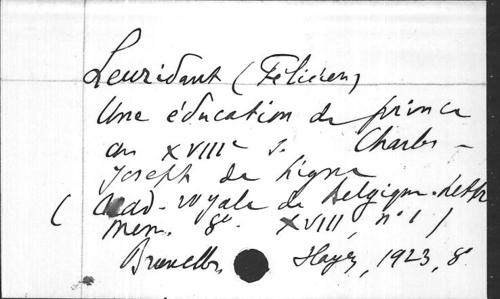 Leuridant (Félicien)
Une éducation de prince
au XVIIIe s. Charles-
Joseph de Ligne
(Acad. royale de Belgique. Lettr
Mém. 8°. XVIII, n° 1)
Bruxelles, Hayez, 1923, 8°